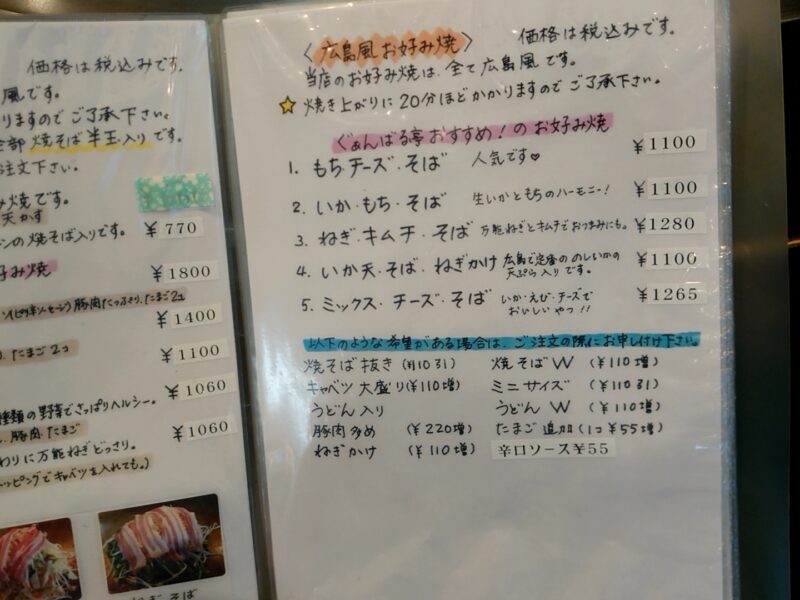 価格は税込みです。
風です。
りますので ご了承下さい。
全部 焼そば 半玉入り です。
注文下さい。
み焼です。
天かす
ンの焼そば入りです。 ¥770
好み焼
¥1800
豚肉たっぷり、たまご2コ
¥1400
たまご2コ
¥1100
¥1060
種類の野菜でさっぱりヘルシー。
豚肉、たまご ¥1060
わりに万能ねぎどっさり。
トッピングでキャベツを入れても。)
ねぎ そば
〈広島風お好み焼〉 価格は税込みです。
当店のお好み焼は、全て広島風です。
☆ 焼き上がりに20分ほどかかりますので ご了承下さい。
ぐぁんばる亭おすすめ!のお好み焼
1. もち・チーズ・そば 人気です♡ ¥1100
2. いか・もち・そば 生いかともちのハーモニー! ¥1100
3. ねぎ・キムチ・そば 万能ねぎとキムチでおつまみにも。 ¥1280
4. いか天・そば・ねぎかけ 広島で定番ののしいかの
天ぷら入りです。 ¥1100
5. ミックス・チーズ・そば いか・えび・チーズで
おいしいやつ!! ¥1265
以下のような希望がある場合は、ご注文の際にお申し付け下さい。
焼そば抜き (¥110引) 焼そばW (¥110増)
キャベツ大盛り(¥110増) ミニサイズ (¥110引)
うどん入り うどんW (¥110増)
豚肉多め (¥220増) たまご追加 (1コ¥55増)
ねぎかけ (¥110増) 辛口ソース¥55